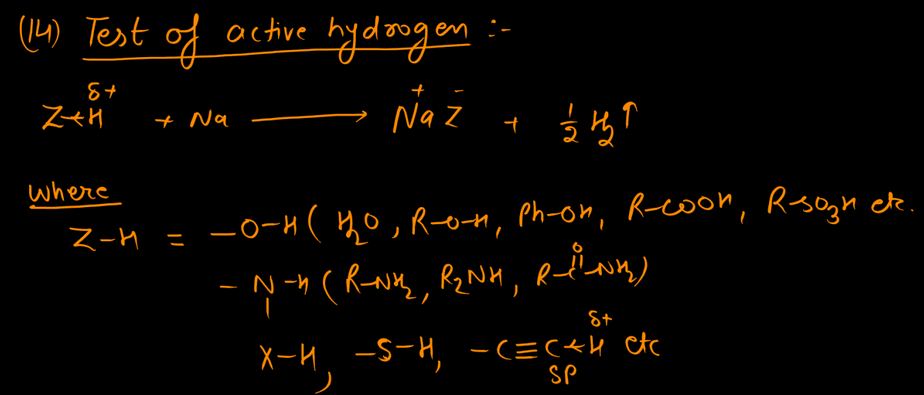 (14) Test of active hydrogen :-
Z←H^δ+ + Na ⟶ Na⁺ Z⁻ + ½ H₂↑
where
Z-H = -O-H ( H₂O, R-O-H, Ph-OH, R-COOH, R-SO₃H etc.
-N-H ( R-NH₂, R₂NH, R-C(=O)-NH₂)
X-H, -S-H, -C≡C←H^δ+ etc
SP